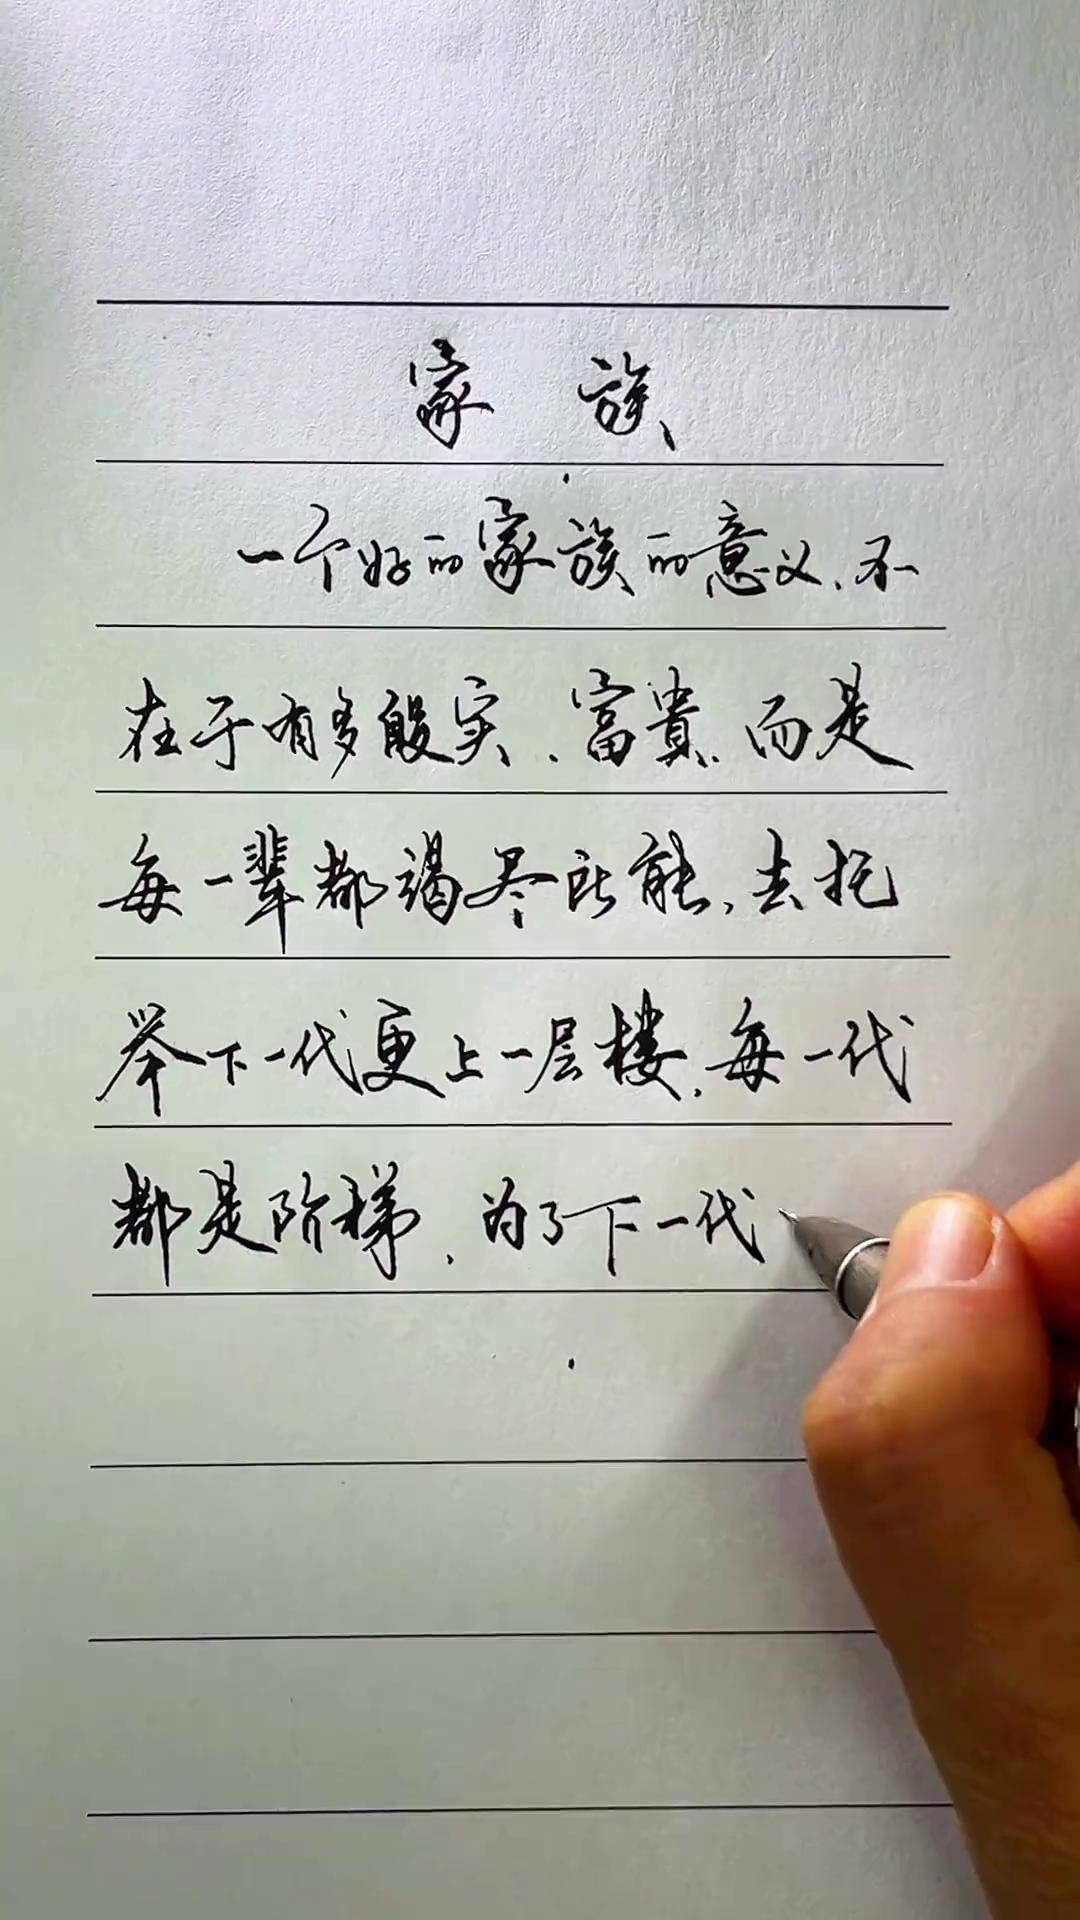 家族
一个好的家族的意义、不
在于有多殷实、富貴、而是
每一辈都竭尽所能、去托
举下一代更上一层楼、每一代
都是阶梯、为了下一代